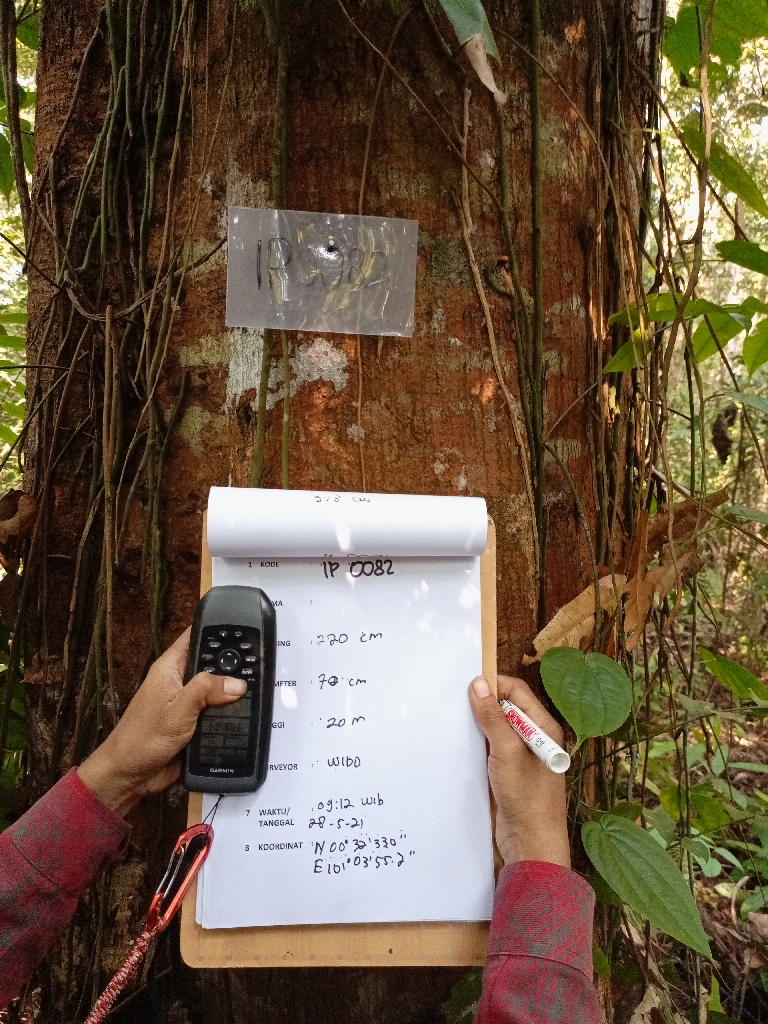 IP 0082
1 KODE IP 0082
MA :
ING : 220 cm
METER : 70 cm
GGI : 20 m
RVEYOR : WIBO
7 WAKTU/ : 09:12 WIB
TANGGAL 28-5-21
8 KOORDINAT : N 00° 32' 330"
E 101° 03' 55.2"
GARMIN
SNOWMAN